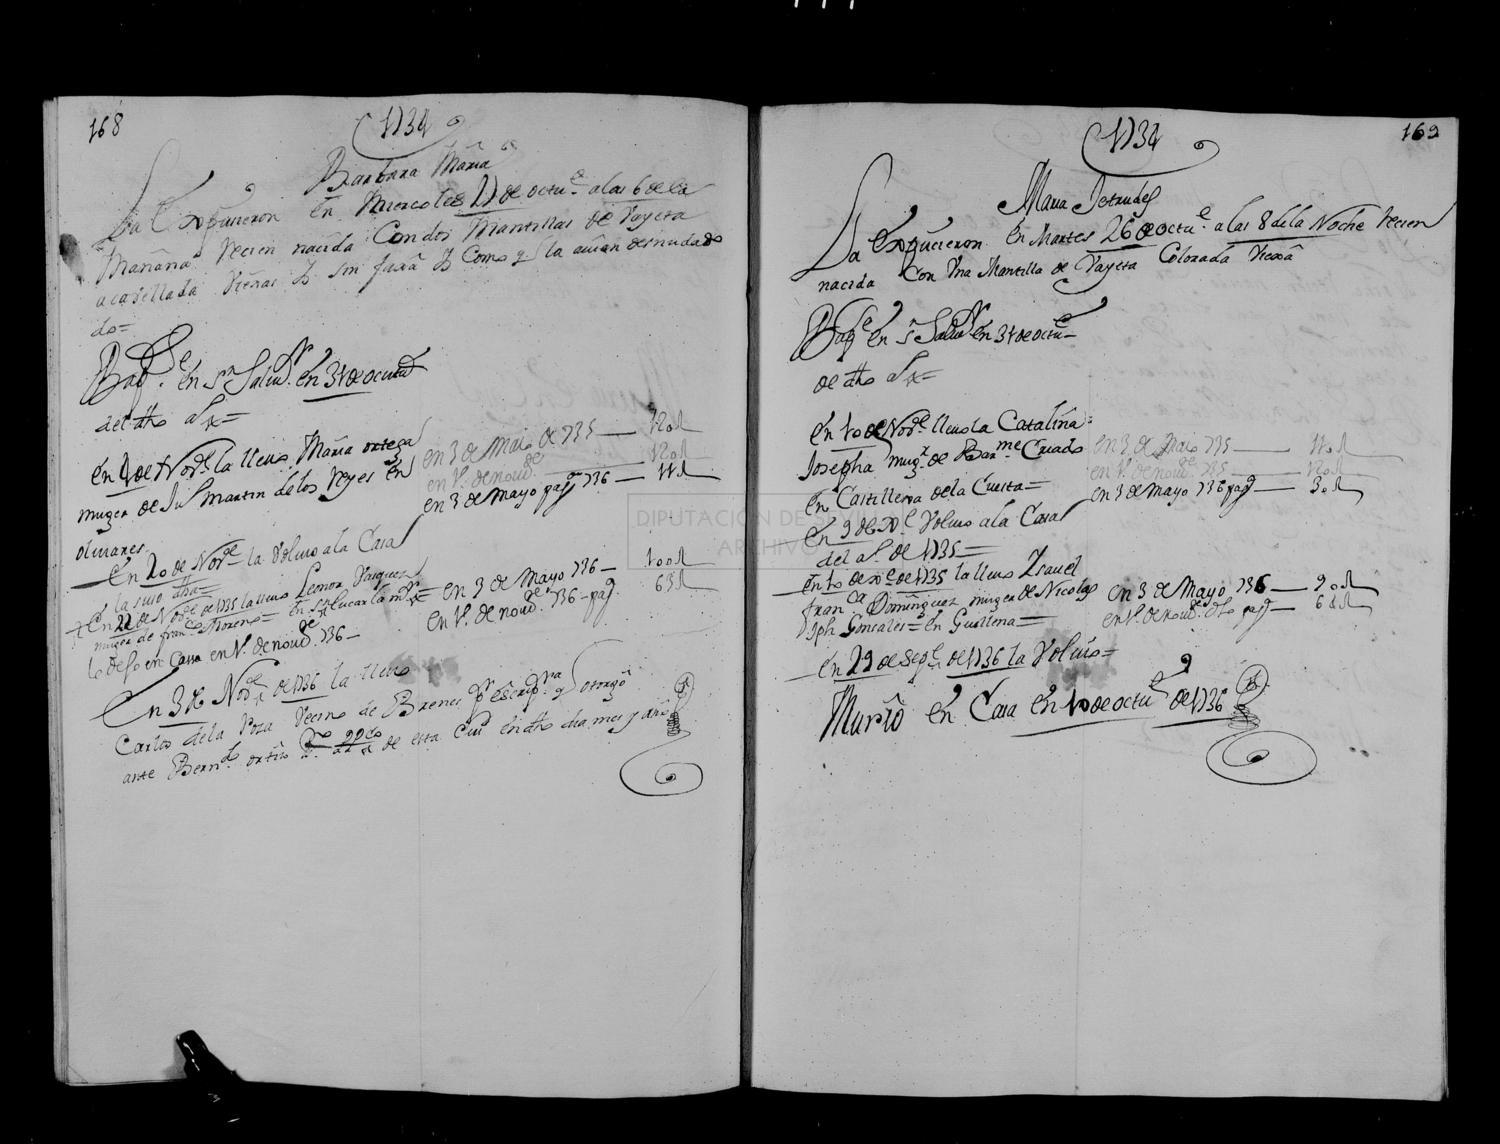 168
1734
Barbara Maria
La Expusieron en Miercoles de octue. a las 6 de la
Mañana recien nacida Con dos Mantillas de Vayeta
acavellada Viejas y sin faxa y Como q la avian desnudado
do=
Bapse. en Sn Salvr. en 31 de octue
del dho
en de Nore. la llevo Maria ortega
muger de Ju Martin de los Reyes en
olivares
en 3 de Maio de 735 — 120 R
en 1º. de novde — 120 R
en 3 de Mayo pag 736 — 11 R
en 20 de Nore la Volvio a la Casa
la suso dha=
en 22 de Nore de 1735 la llevo Leonor Vasquez
muger de franco Moreno = en Sn lucar la mor
en 3 de Mayo 736 — 100 R
en 1º. de novde. 736 — pag. 63 R
lo de so en Casa en 1º. de novde. 736 —
En 3 de Nore de 1736 la llevo
Carlos de la Poza Vecino de Brenes pr escripra q otorgo
ante Berndo ortiz de esta Ciud en dho dia mes y año
169
1734
Maria Jetrudes
La expusieron en Martes 26 de octue. a las 8 de la Noche recien
nacida Con Una Mantilla de Vayeta Colorada Viexa
Bape en Sn Salvr en 31 de octue
de dho
en 10 de Nore. llevo la Catalina
Josepha mugr. de Barme Criado
en Castilleja de la Cuesta=
en 3 de Maio 735 — 110 R
en 1º. de novde 735 — 120 R
en 3 de Mayo 736 pag — 30 R
en 9 de Volvio a la Casa
del aº. de 1735 =
en 10 de de 1735 la llevo Isavel
Franca Dominguez muger de Nicolas
Jph Gonsales = en Guillena =
en 3 de Mayo 736 — 90 R
en 1º. de novde. dho pag — 68 R
en 29 de Sepe. de 1736 la Volvio=
Murio en Casa en 10 de octue de 1736
DIPUTACIÓN DE SEVILLA
ARCHIVO